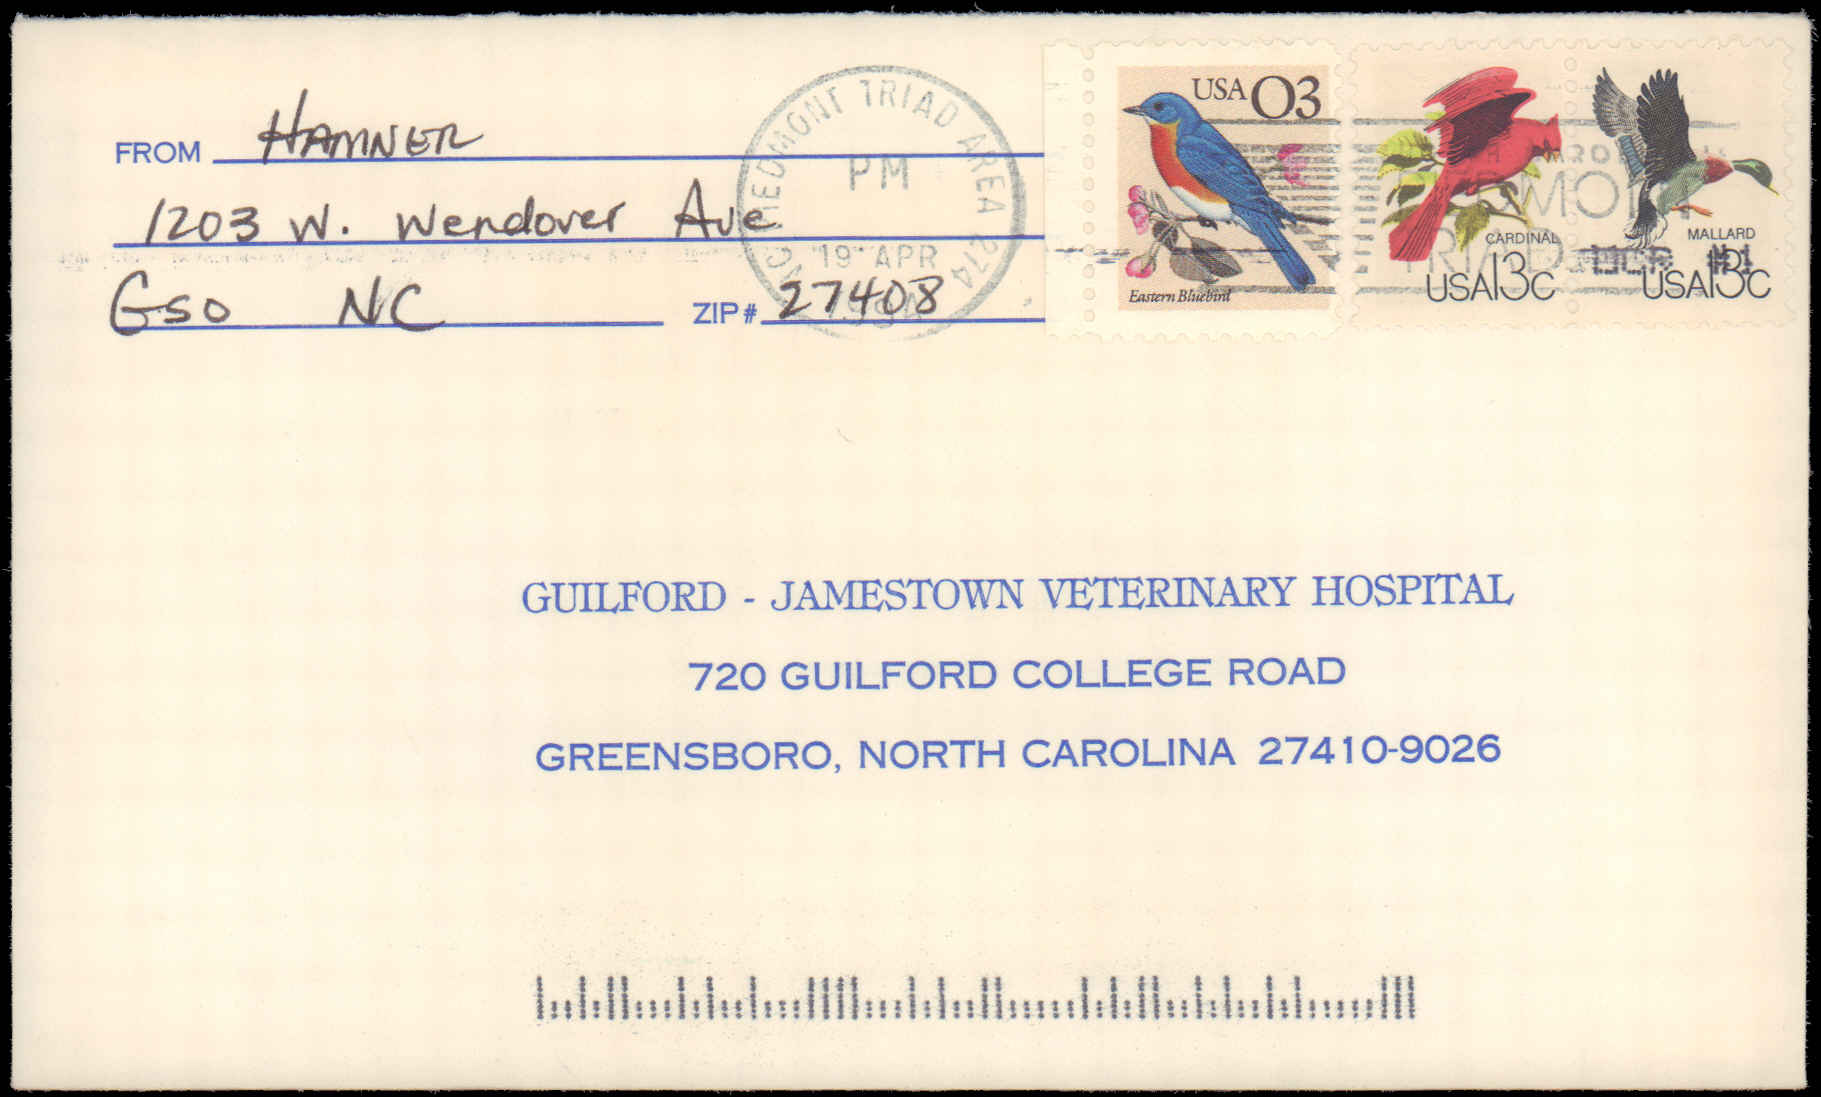 FROM HAMNER
1203 W. Wendover Ave
Gso NC ZIP# 27408
PIEDMONT TRIAD AREA 274
PM
19 APR
NC
USA 03
Eastern Bluebird
CARDINAL
USA 13c
MALLARD
USA 13c
#1
GUILFORD - JAMESTOWN VETERINARY HOSPITAL
720 GUILFORD COLLEGE ROAD
GREENSBORO, NORTH CAROLINA 27410-9026